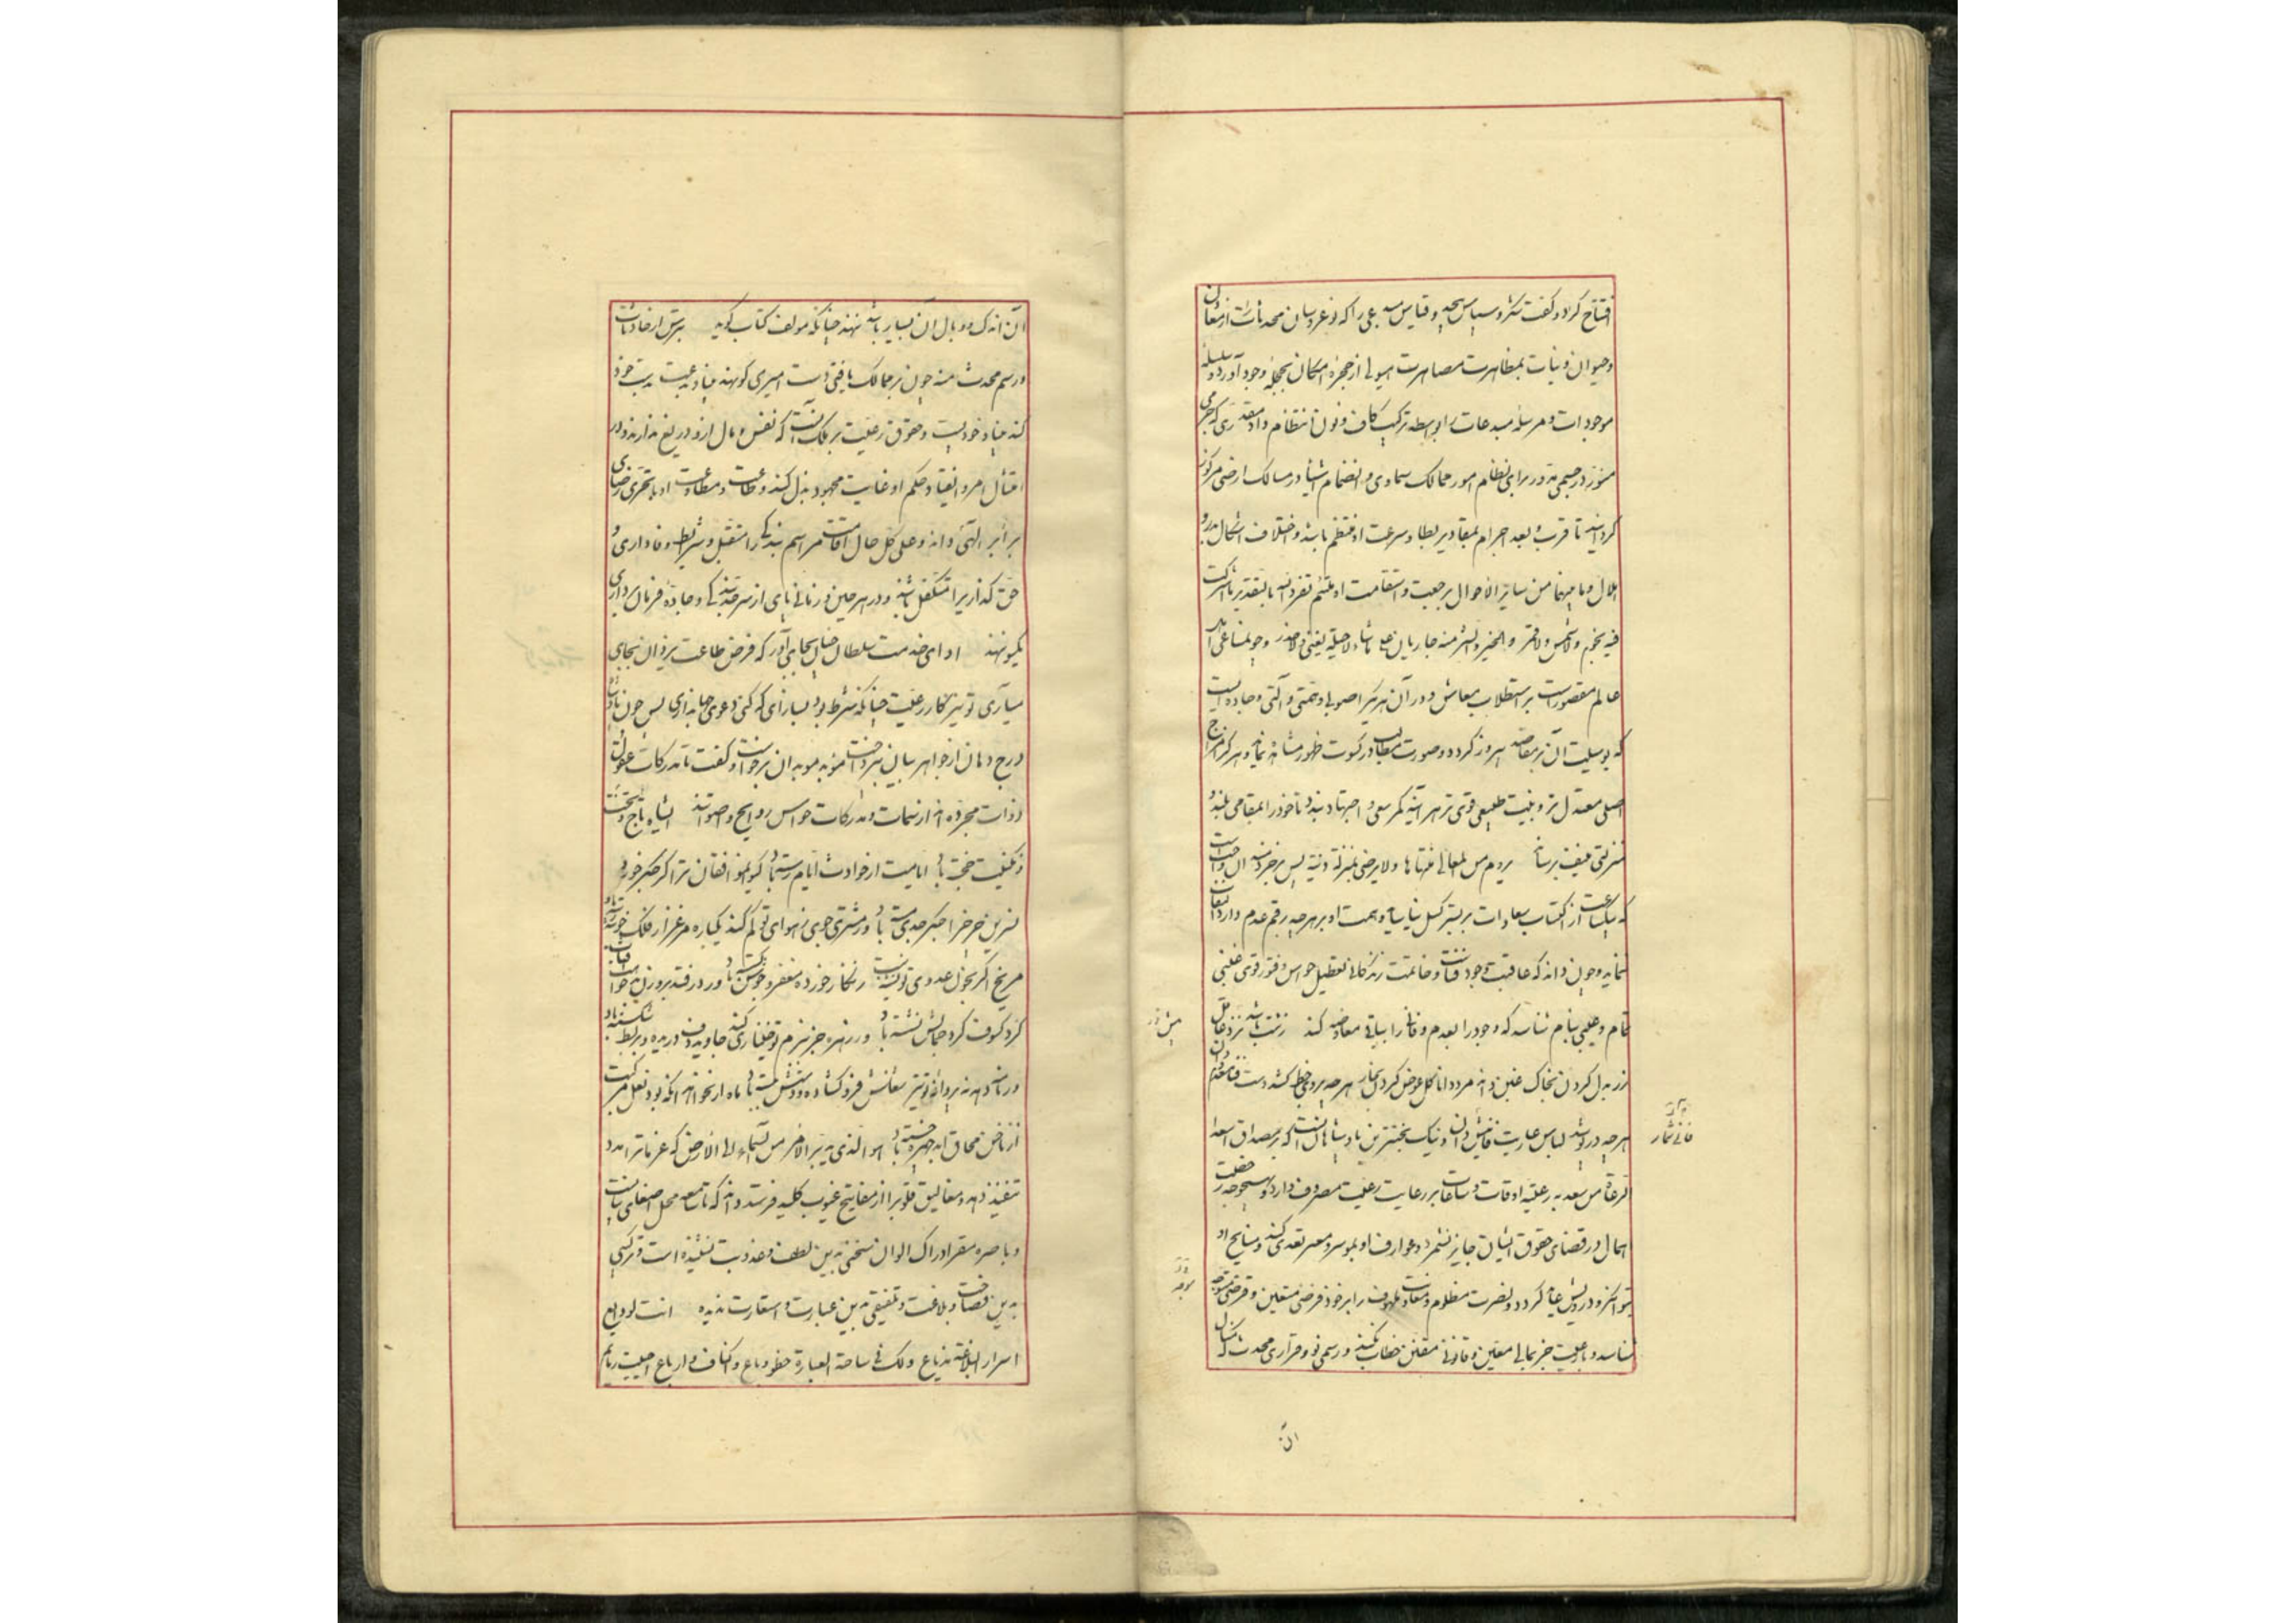 افتتاح کرد و گفت شکر و سپاس بیحد و قیاس مبدعی را که نوعروسان محدثات از معادن
و حیوان و نبات بمظاهرت مصاهرت هیولی از حجره امکان بحجله وجود آورد و سلسله
موجودات و مرسله مبدعات را بواسطه ترکیب کاف و نون انتظام داد مقدری که جرمی
منور در جسمی مدور برای نظام امور ممالک سماوی و انضمام اشیا در مسالک ارضی مرکوز
گردانید تا قرب و بعد اجرام بمقادیر بطا و سرعت او منتظم باشد و اختلاف اشکال بدر و
هلال و ما بینهما من سایر الاحوال برجعت و استقامت او ملتئم تفرد الله بالتقدیر ما شرکت
فیه نجوم ولا شمس ولا قمر والخیر والشر منه جاریان علی ما شاء لا حیلة یغنی ولا حذر
عالم مقصورست بر استطلاب معاش و در آن هر یک را صوبی و سمتی و آلتی و جاده ایست
که بوسیلت آن بر مقاصد پیروز گردد و صورت مطالب در کسوت ظهور مشاهده نماید و هر کرا مزاج
اصلی معتدل تر و بنیت طبیعی قوی تر هر آینه کمر سعی و اجتهاد بندد تا خود را بمقامی بلند و
منزلتی منیف برساند یروم من المعالی منتهاها ولا یرضی بمنزلة دنیة پس بر خردمند آن واجب است
که یکساعت از اکتساب سعادات بر بستر کسل نیاساید و همت او بر هر چه رقم عدم دارد التفات
ننماید و چون داند که عاقبت وجود فناست و خاتمت زندگانی تعطیل حواس و فتور قوی غبنی
تمام و عیبی بنام شناسد که وجود را بعدم و فانی را بباقی معاوضه کند زشت باشد نزد عاقل
زر بدل کردن بخاک غبن داند مرد دانا گل عوض کردن بخار هر چه بر وی خط کشد دست فنا معدوم دان
هر چه در پوشد لباس عاریت فانیش دان و نیک بختترین پادشاهان آنست که بر مصداق اسعد
الرعاة من سعد به رعیته اوقات و ساعات بر رعایت رعیت مصروف دارد و بهیچوجه رخصت
اهمال در قضای حقوق ایشان جایز نشمرد و عوارف او بموسر و معسر تعدی کند و منایح او
بتوانگر و درویش عاید گردد و نصرت مظلوم و معاونت ملهوف را بر خود فرضی متعین و قرضی متوجه
شناسد و با رعیت جز بمالی معین و قانونی مقنن خطاب نکند و رسمی نو و قراری محدث که منال
پیش خرد
فانی شمار
موجه
آن
آن اندک و وبال آن بسیار باشد ننهد چنانکه مولف کتاب گوید بترس از حادثات
و رسم محدث منه چون بر ممالک یافتی دست امیری کو نهد بنیاد بدعت بدست خود
کند بنیاد خود پست و حقوق رعیت بر ملک آنست که نفس و مال ازو دریغ ندارند و در
امتثال امر و انقیاد حکم او غایت مجهود بذل کنند و طاعت و مطاوعت او با تحری رضای
برابر الهی دانند و علی کل حال اقامت مراسم بندگی را متقبل و شرایط وفاداری و
حق گذاری را متکفل باشند و در هر حین و زمانی پای از سر حد بندگی و جاده فرمان برداری
یکسو ننهند ادای خدمت سلطان چنان بجای آور که فرض طاعت یزدان بجای
میآری تو نیز کار رعیت چنانکه شرط بود بساز ای که کنی دعوی جهانداری پس چون
درج دهان از جواهر بیان بپرداخت موبد موبدان برخاست و گفت تا مدرکات عقول
ذوات مجرده اند از سمات و مدرکات حواس روایح و اصواتند ای شاه تاج و تخت
ز تمکینت خجسته باد ایامت از حوادث ایام رسته باد گر نه بموافقان ترا گر جگر خورد
نسرین چرخ را جگر جدی مسته باد ور مشتری جوی ز هوای تو کم کند یکباره مرغزار فلک خوشه رسته باد
مریخ اگر بخون عدوی تو تشنه نیست زنگار خورده مغفر و جوشن گسسته باد ور در فتد بروزنت آفتاب
گرد کسوف گرد جمالش نشسته باد ور زهره جز ببزم تو خنیاگری کند جاوید دف دریده و بربط شکسته باد
ور نامه دهد نه بر وفق تو تیر معانش فرو گشاده و دستش ببسته باد ماه ار نخواهد آنکه بود نعل مرکبت
از ناخن محاق ابد چهره خسته باد هو الذی یدبر الامر من السماء الی الارض که عزمات را مدد
تنفیذ دهد و مغالیق قلوب را از مفاتیح غیوب کلید فرستد داند که تا سامعه محل اصغای بیانست
و باصره مقر ادراک الوان سخنی بدین لطف و عذوبت نشنیده است و ترکیبی
بدین فصاحت و بلاغت و تلفیقی بدین عبارت و استعارت ندیده انت لودایع
اسرار البلاغة مذیاع ولک فی ساحة العبارة خطو وباع واکناف وارباع احییت رمایم